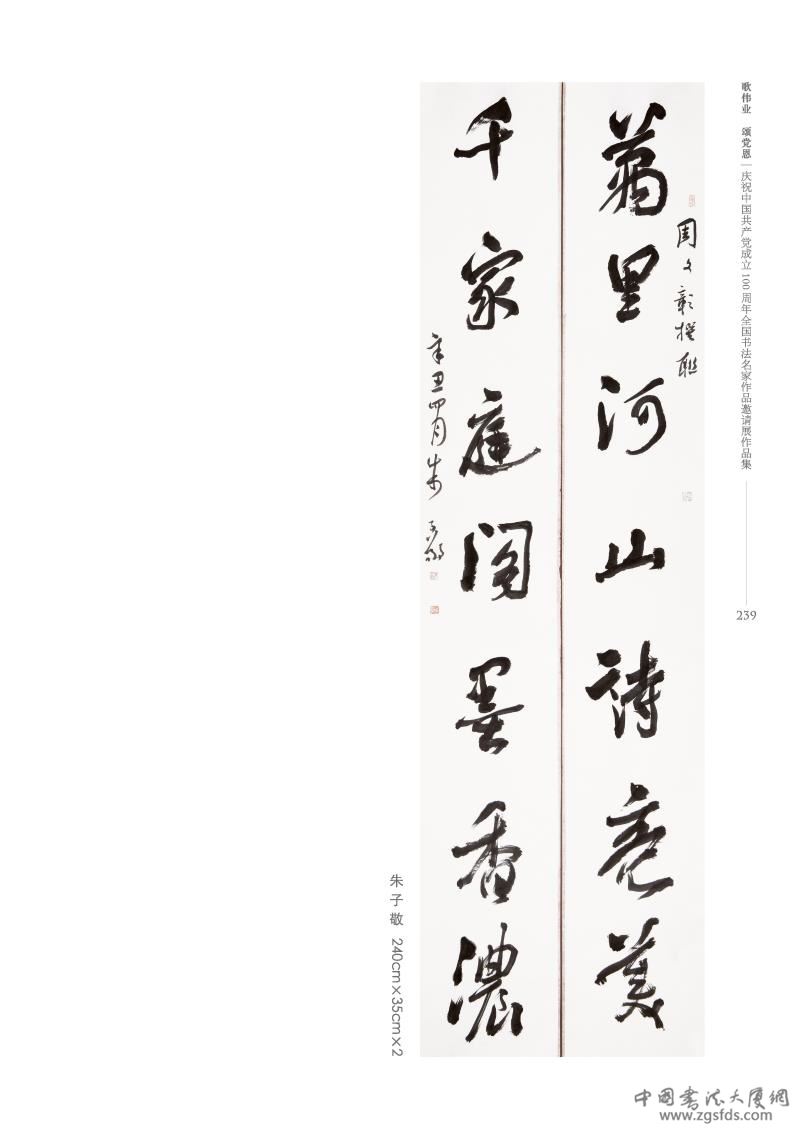 歌伟业 颂党恩 | 庆祝中国共产党成立100周年全国书法名家作品邀请展作品集
239
萬里河山詩意美
周文彰撰联
千家庭阁墨香濃
辛丑四月朱子敬
朱子敬 240cm×35cm×2
中国书法大厦網
www.zgsfds.com